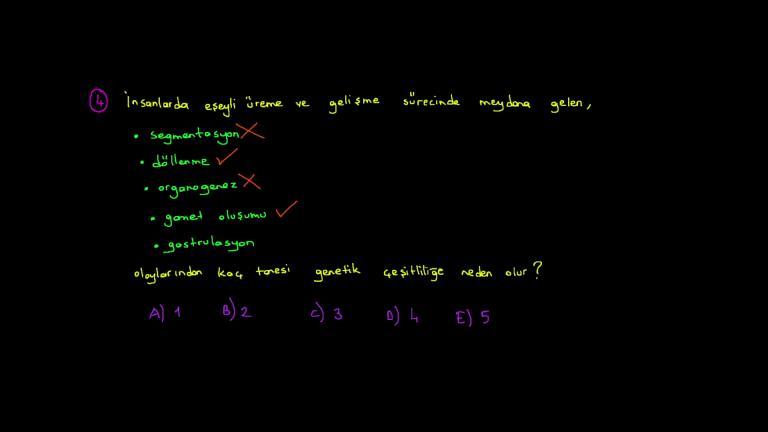 4 İnsanlarda eşeyli üreme ve gelişme sürecinde meydana gelen,
• segmentasyon
• döllenme
• organogenez
• gamet oluşumu
• gastrulasyon
olaylarından kaç tanesi genetik çeşitliliğe neden olur?
A) 1 B) 2 C) 3 D) 4 E) 5